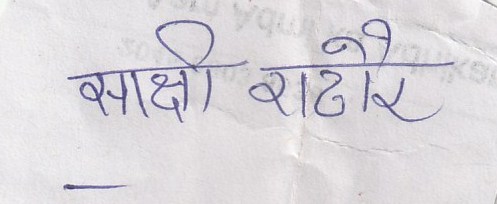 साक्षी राठौर